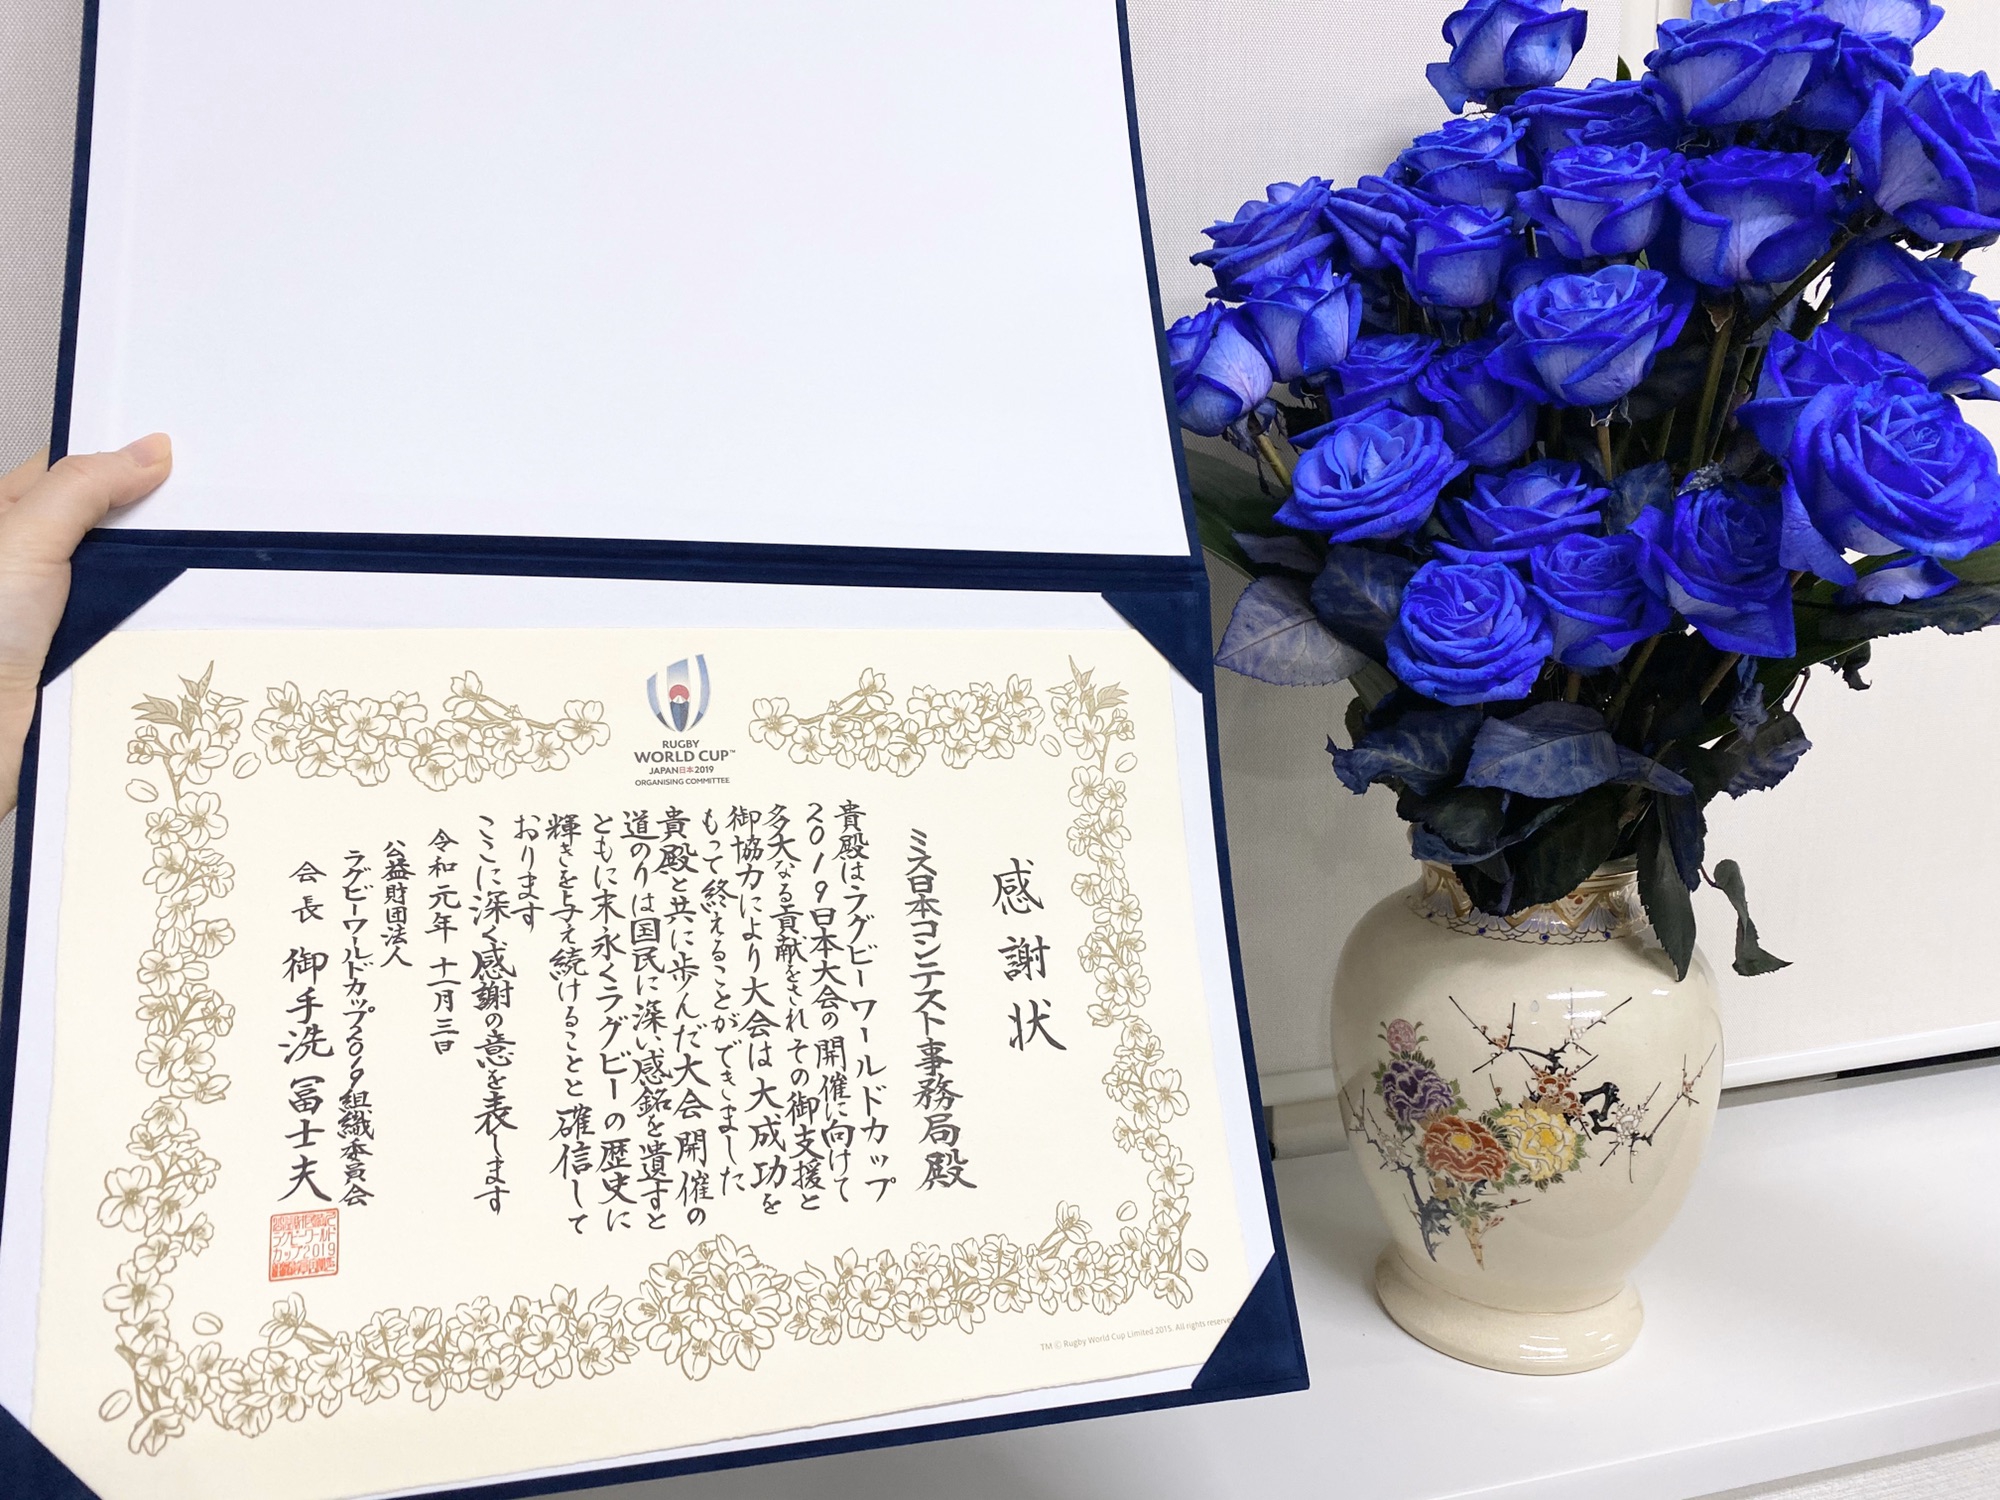 RUGBY
WORLD CUP™
JAPAN日本2019
ORGANISING COMMITTEE
感謝状
ミス日本コンテスト事務局殿
貴殿はラグビーワールドカップ
2019日本大会の開催に向けて
多大なる貢献をされその御支援と
御協力により大会は大成功を
もって終えることができました
貴殿と共に歩んだ大会開催の
道のりは国民に深い感銘を遺すと
ともに末永くラグビーの歴史に
輝きを与え続けることと確信して
おります
ここに深く感謝の意を表します
令和元年十一月三日
公益財団法人
ラグビーワールドカップ2019組織委員会
会長 御手洗冨士夫
ラグビーワールド
カップ2019
TM © Rugby World Cup Limited 2015. All rights reserve